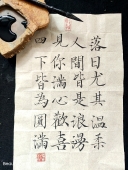 落日尤其溫柔
人間皆是浪漫
見你滿心歡喜
四下皆為圓滿